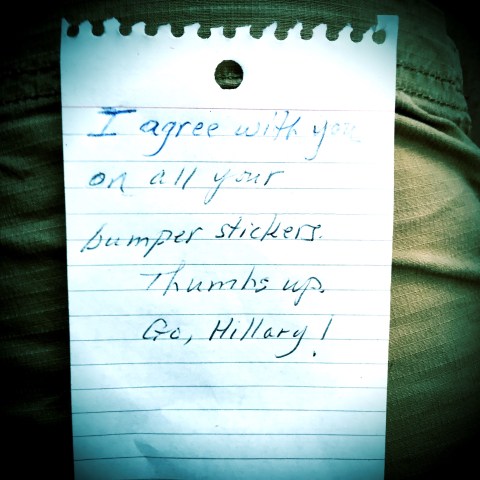 I agree with you
on all your
bumper stickers.
Thumbs up.
Go, Hillary!